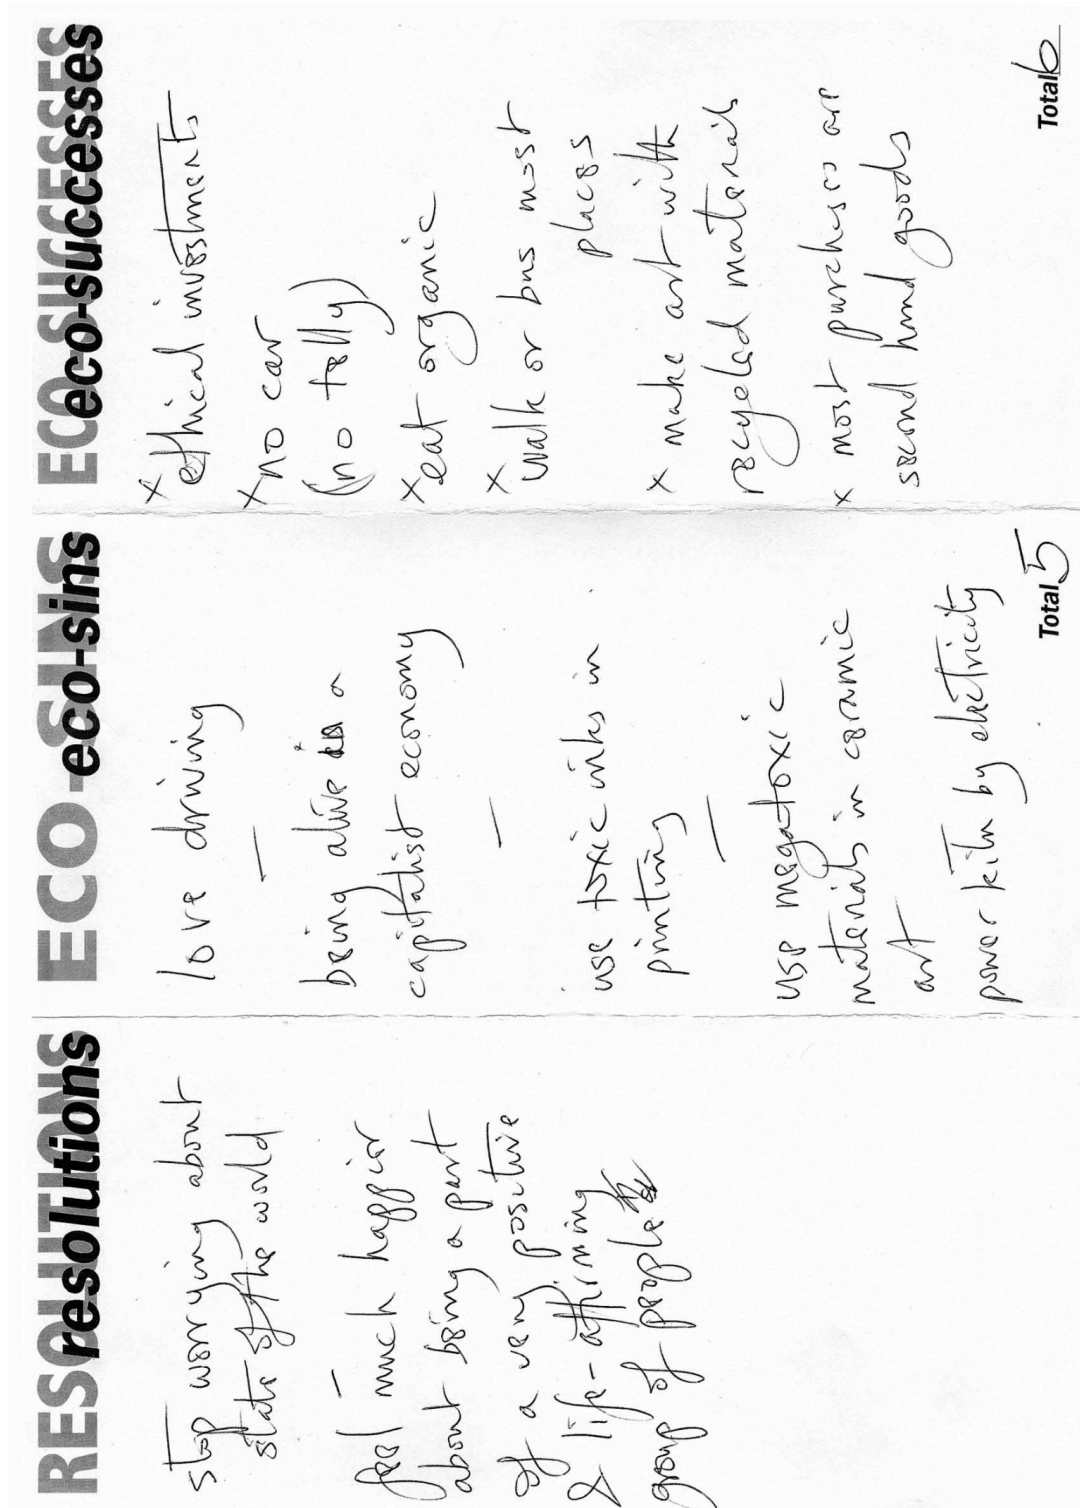 RESOLUTIONS
resolutions
stop worrying about
state of the world
—
feel much happier
about being a part
of a very positive
& life-affirming
group of people
ECO-SINS
eco-sins
love driving
—
being alive in a
capitalist economy
—
use toxic inks in
printing
—
use megatoxic
materials in ceramic
art
power kiln by electricity
Total 5
ECO-SUCCESSES
eco-successes
x ethical investments
x no car
(no telly)
x eat organic
x walk or bus most
places
x make art with
recycled materials
x most purchases are
second hand goods
Total 6